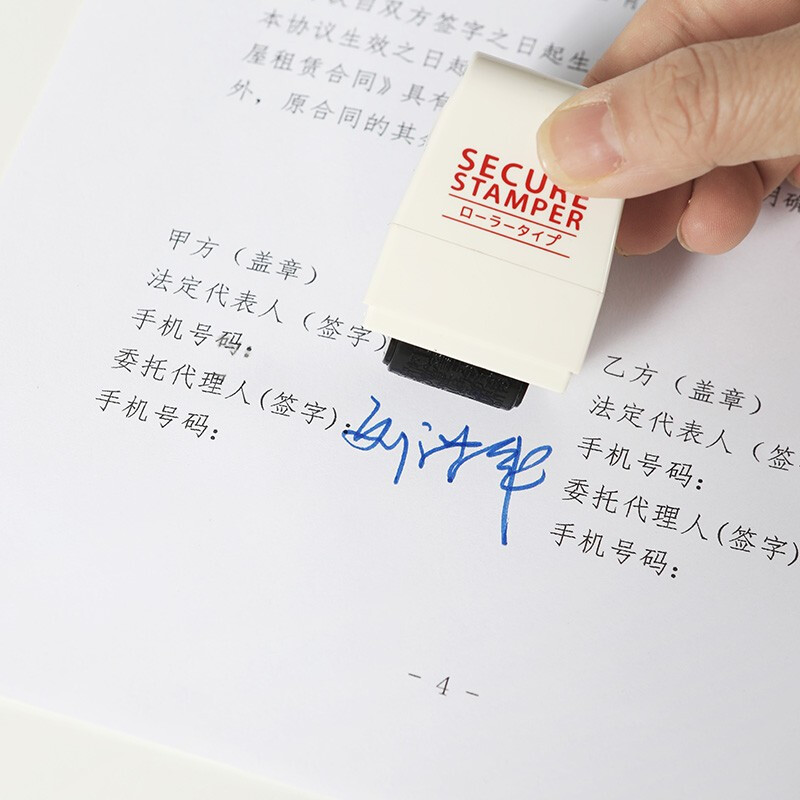 双方签字之日起生
本协议生效之日起
屋租赁合同》具有
外，原合同的其
SECURE
STAMPER
ローラータイプ
甲方（盖章）
法定代表人（签字）
手机号码：
委托代理人(签字)：
手机号码：
乙方（盖章）
法定代表人（签
手机号码：
委托代理人(签字)
手机号码：
- 4 -